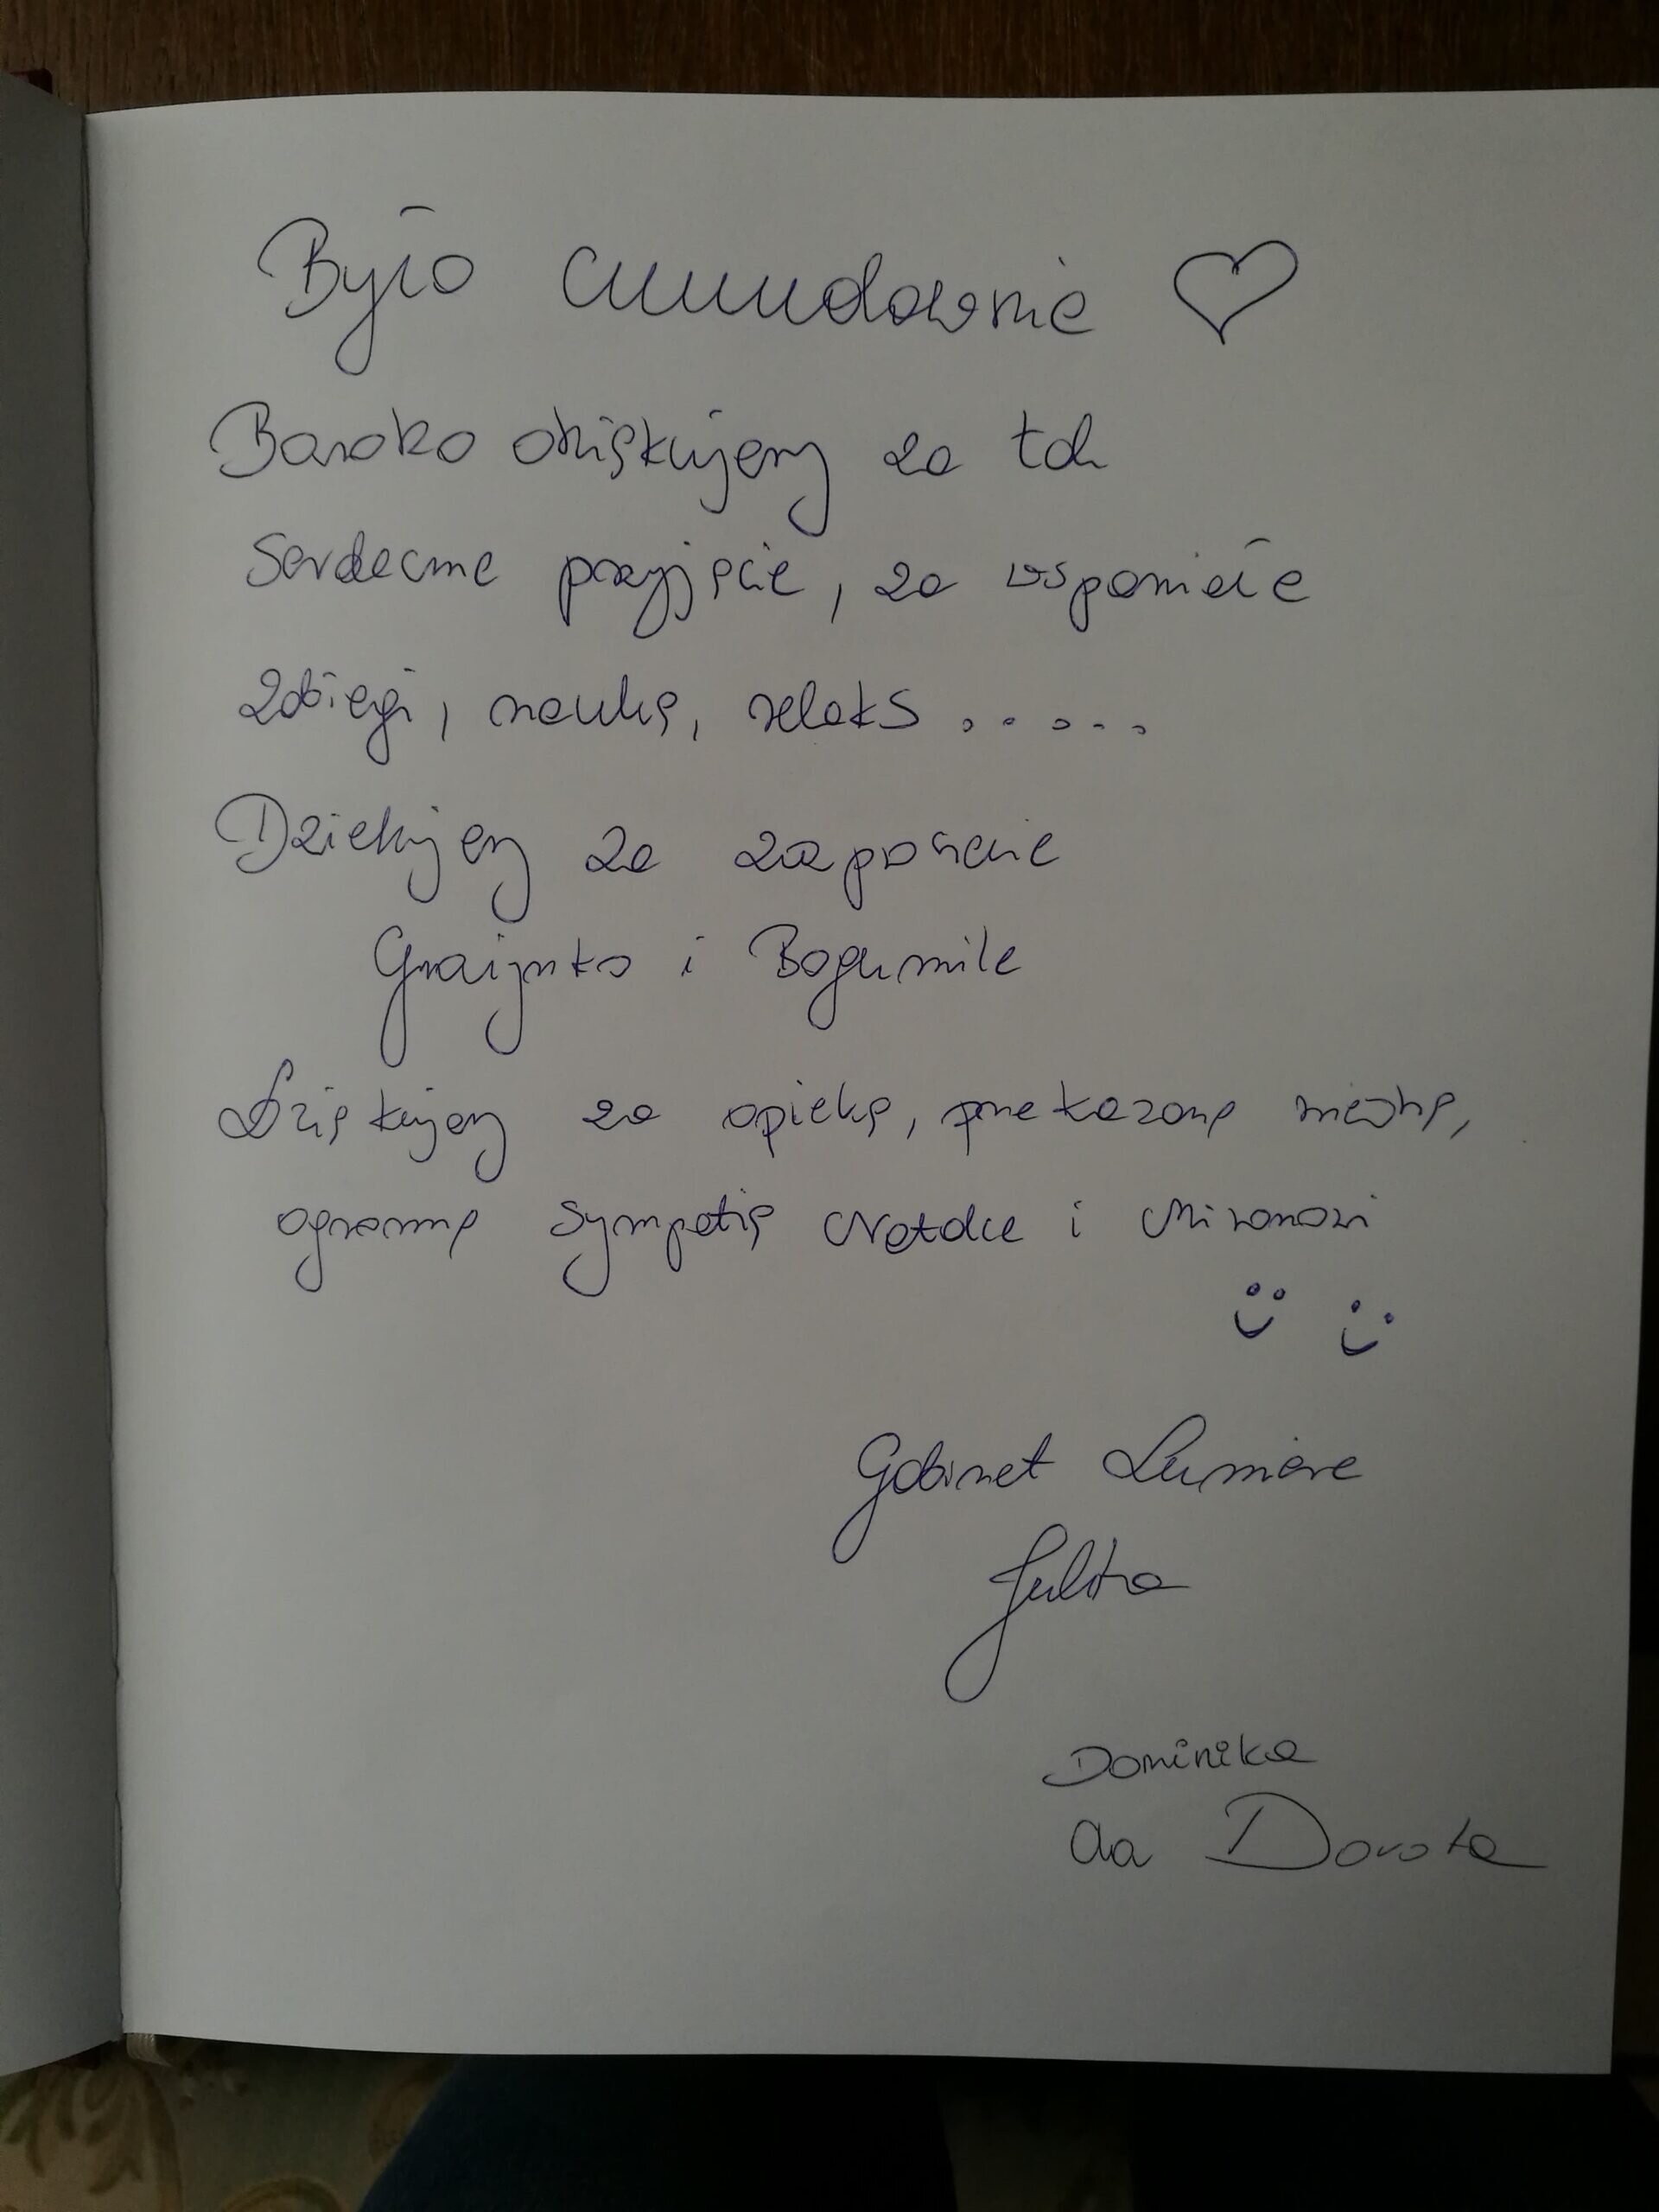 Było cuuuudownie ♡
Bardzo dziękujemy za tak
serdeczne przyjęcie, za wspaniałe
zabiegi, naukę, relaks . . . . .
Dziękujemy za zaproszenie
Grażynko i Bogumile
Dziękujemy za opiekę, przekazaną wiedzę,
ogromną sympatię Natalce i Mironowi
Gabinet Lumiere
Julita
Dominika
Dorota